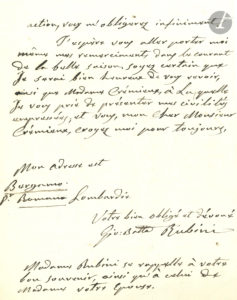 action, vous m'obligerez infiniment.
J'espère vous aller porter moi
même mes remerciments, dans le courant
de la belle saison, soyez certain que
Je serai bien heureux de vous revoir,
ainsi que Madame Crémieux, à La quelle
Je vous prie de présenter mes civilités
empressées, et vous, mon cher Monsieur
Crémieux, croyez moi pour toujours,
Mon adresse est
Bergamo
pr. Romano Lombardie
Votre bien obligé et dévoué
Gio. Batta Rubini
Madame Rubini se rappelle à votre
bon souvenir, ainsi qu'à celui de
Madame votre Epouse.